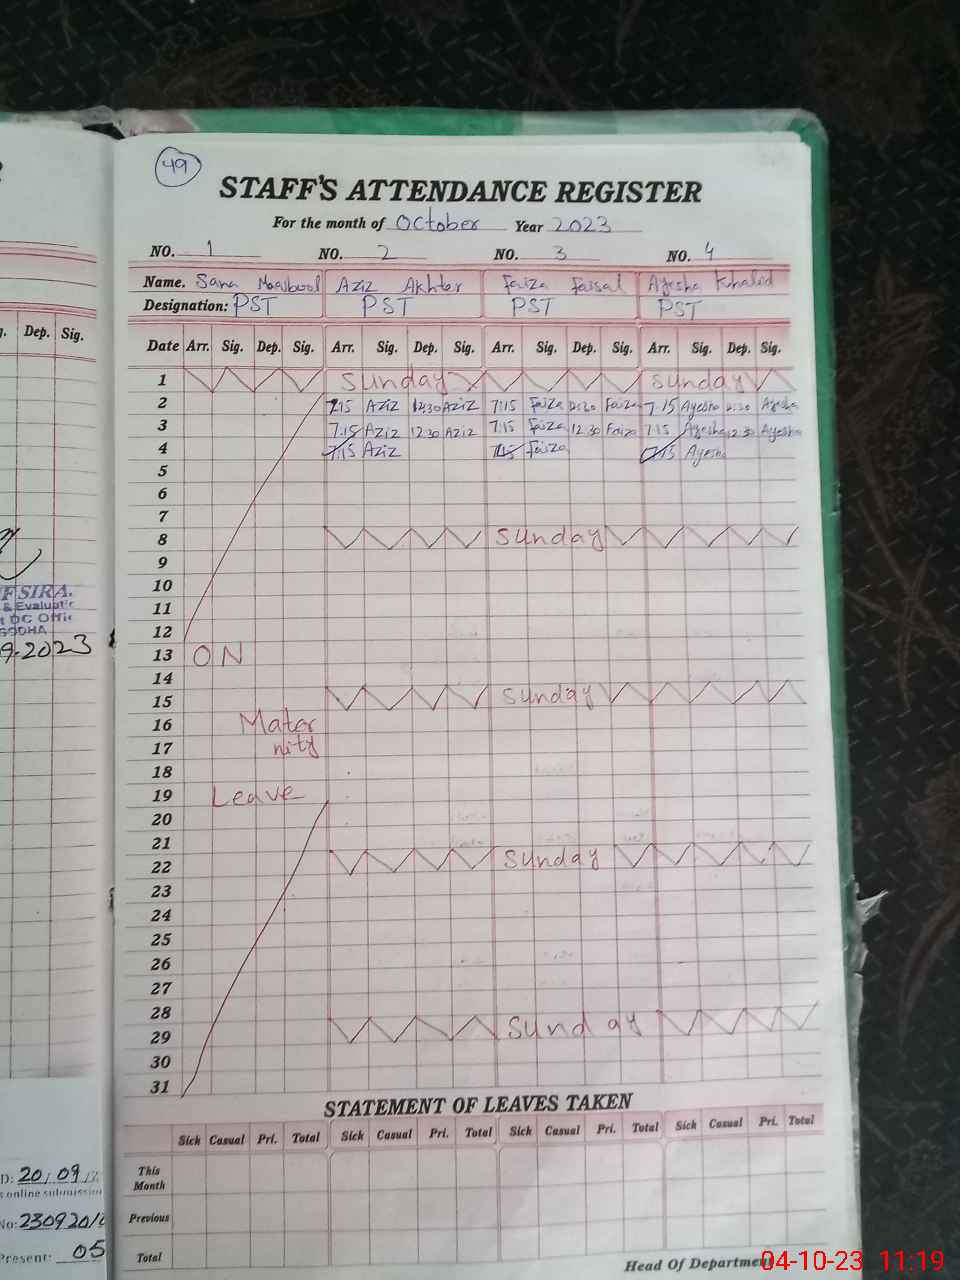 49
STAFF'S ATTENDANCE REGISTER
For the month of October Year 2023
NO. 1 NO. 2 NO. 3 NO. 4
Name. Sana Maqbool Aziz Akhter Faiza Faisal Ayesha Khalid
Designation: PST PST PST PST
Dep. Sig.
Date Arr. Sig. Dep. Sig. Arr. Sig. Dep. Sig. Arr. Sig. Dep. Sig. Arr. Sig. Dep. Sig.
1 Sunday Sunday
2 7:15 Aziz 12:30 Aziz 7:15 Faiza 12:30 Faiza 7:15 Ayesha 12:30 Ayesha
3 7:15 Aziz 12:30 Aziz 7:15 Faiza 12:30 Faiza 7:15 Ayesha 12:30 Ayesha
4 7:15 Aziz 7:15 Faiza 7:15 Ayesha
5
6
7
8 Sunday
9
10
11
12
13 ON
14
15 Sunday
16 Mater
17 nity
18
19 Leave
20
21
22 Sunday
23
24
25
26
27
28
29 Sunday
30
31
SIRA.
& Evaluatio
DC Offic
GODHA
9-2023
STATEMENT OF LEAVES TAKEN
Sick Casual Pri. Total Sick Casual Pri. Total Sick Casual Pri. Total Sick Casual Pri. Total
This
Month
Previous
Total
D: 20/09/
s online submission
No: 2309201
Present: 05
Head Of Department
04-10-23 11:19